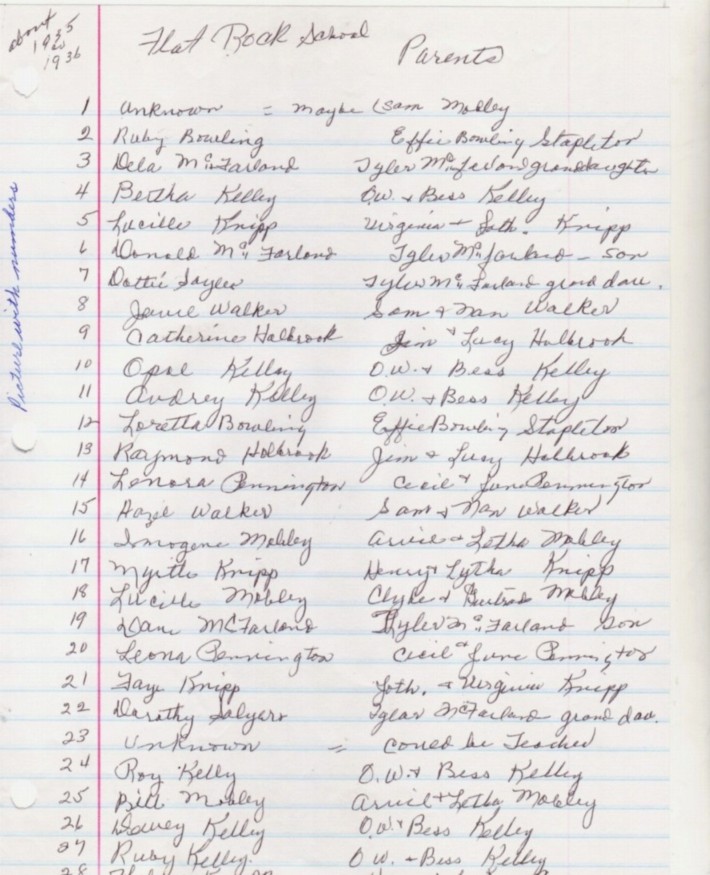 about
1935
to
1936
Flat Rock School Parents
1 Unknown = maybe (Sam Mobley
2 Ruby Bowling Effie Bowling Stapleton
3 Dela McFarland Tyler McFarland granddaughter
4 Bertha Kelley O.W. & Bess Kelley
5 Lucille Knipp Virginia & Loth. Knipp
6 Donald McFarland Tyler McFarland - Son
7 Dottie Tyler McFarland grand dau.
8 Walker Sam & Nan Walker
9 Catherine Holbrook Jim & Lucy Holbrook
10 Opal Kelley O.W. & Bess Kelley
11 Audrey Kelley O.W. & Bess Kelley
12 Loretta Bowling Effie Bowling Stapleton
13 Raymond Holbrook Jim & Lucy Holbrook
14 Lenora Pennington Cecil & June Pennington
15 Hazel Walker Sam & Nan Walker
16 Imogene Mobley Arvil & Letha Mobley
17 Myrtle Knipp Henry & Lytha Knipp
18 Lucille Mobley Clyde & Mobley
19 McFarland Tyler McFarland Son
20 Leona Pennington Cecil & June Pennington
21 Faye Knipp Loth. & Virginia Knipp
22 Dorothy Salyers Tyler McFarland grand dau.
23 Unknown = could be Teacher
24 Roy Kelly O.W. & Bess Kelley
25 Bill Mobley Arvil & Letha Mobley
26 Dewey Kelley O.W. & Bess Kelley
27 Ruby Kelley. O.W. & Bess Kelley
28
Picture with numbers